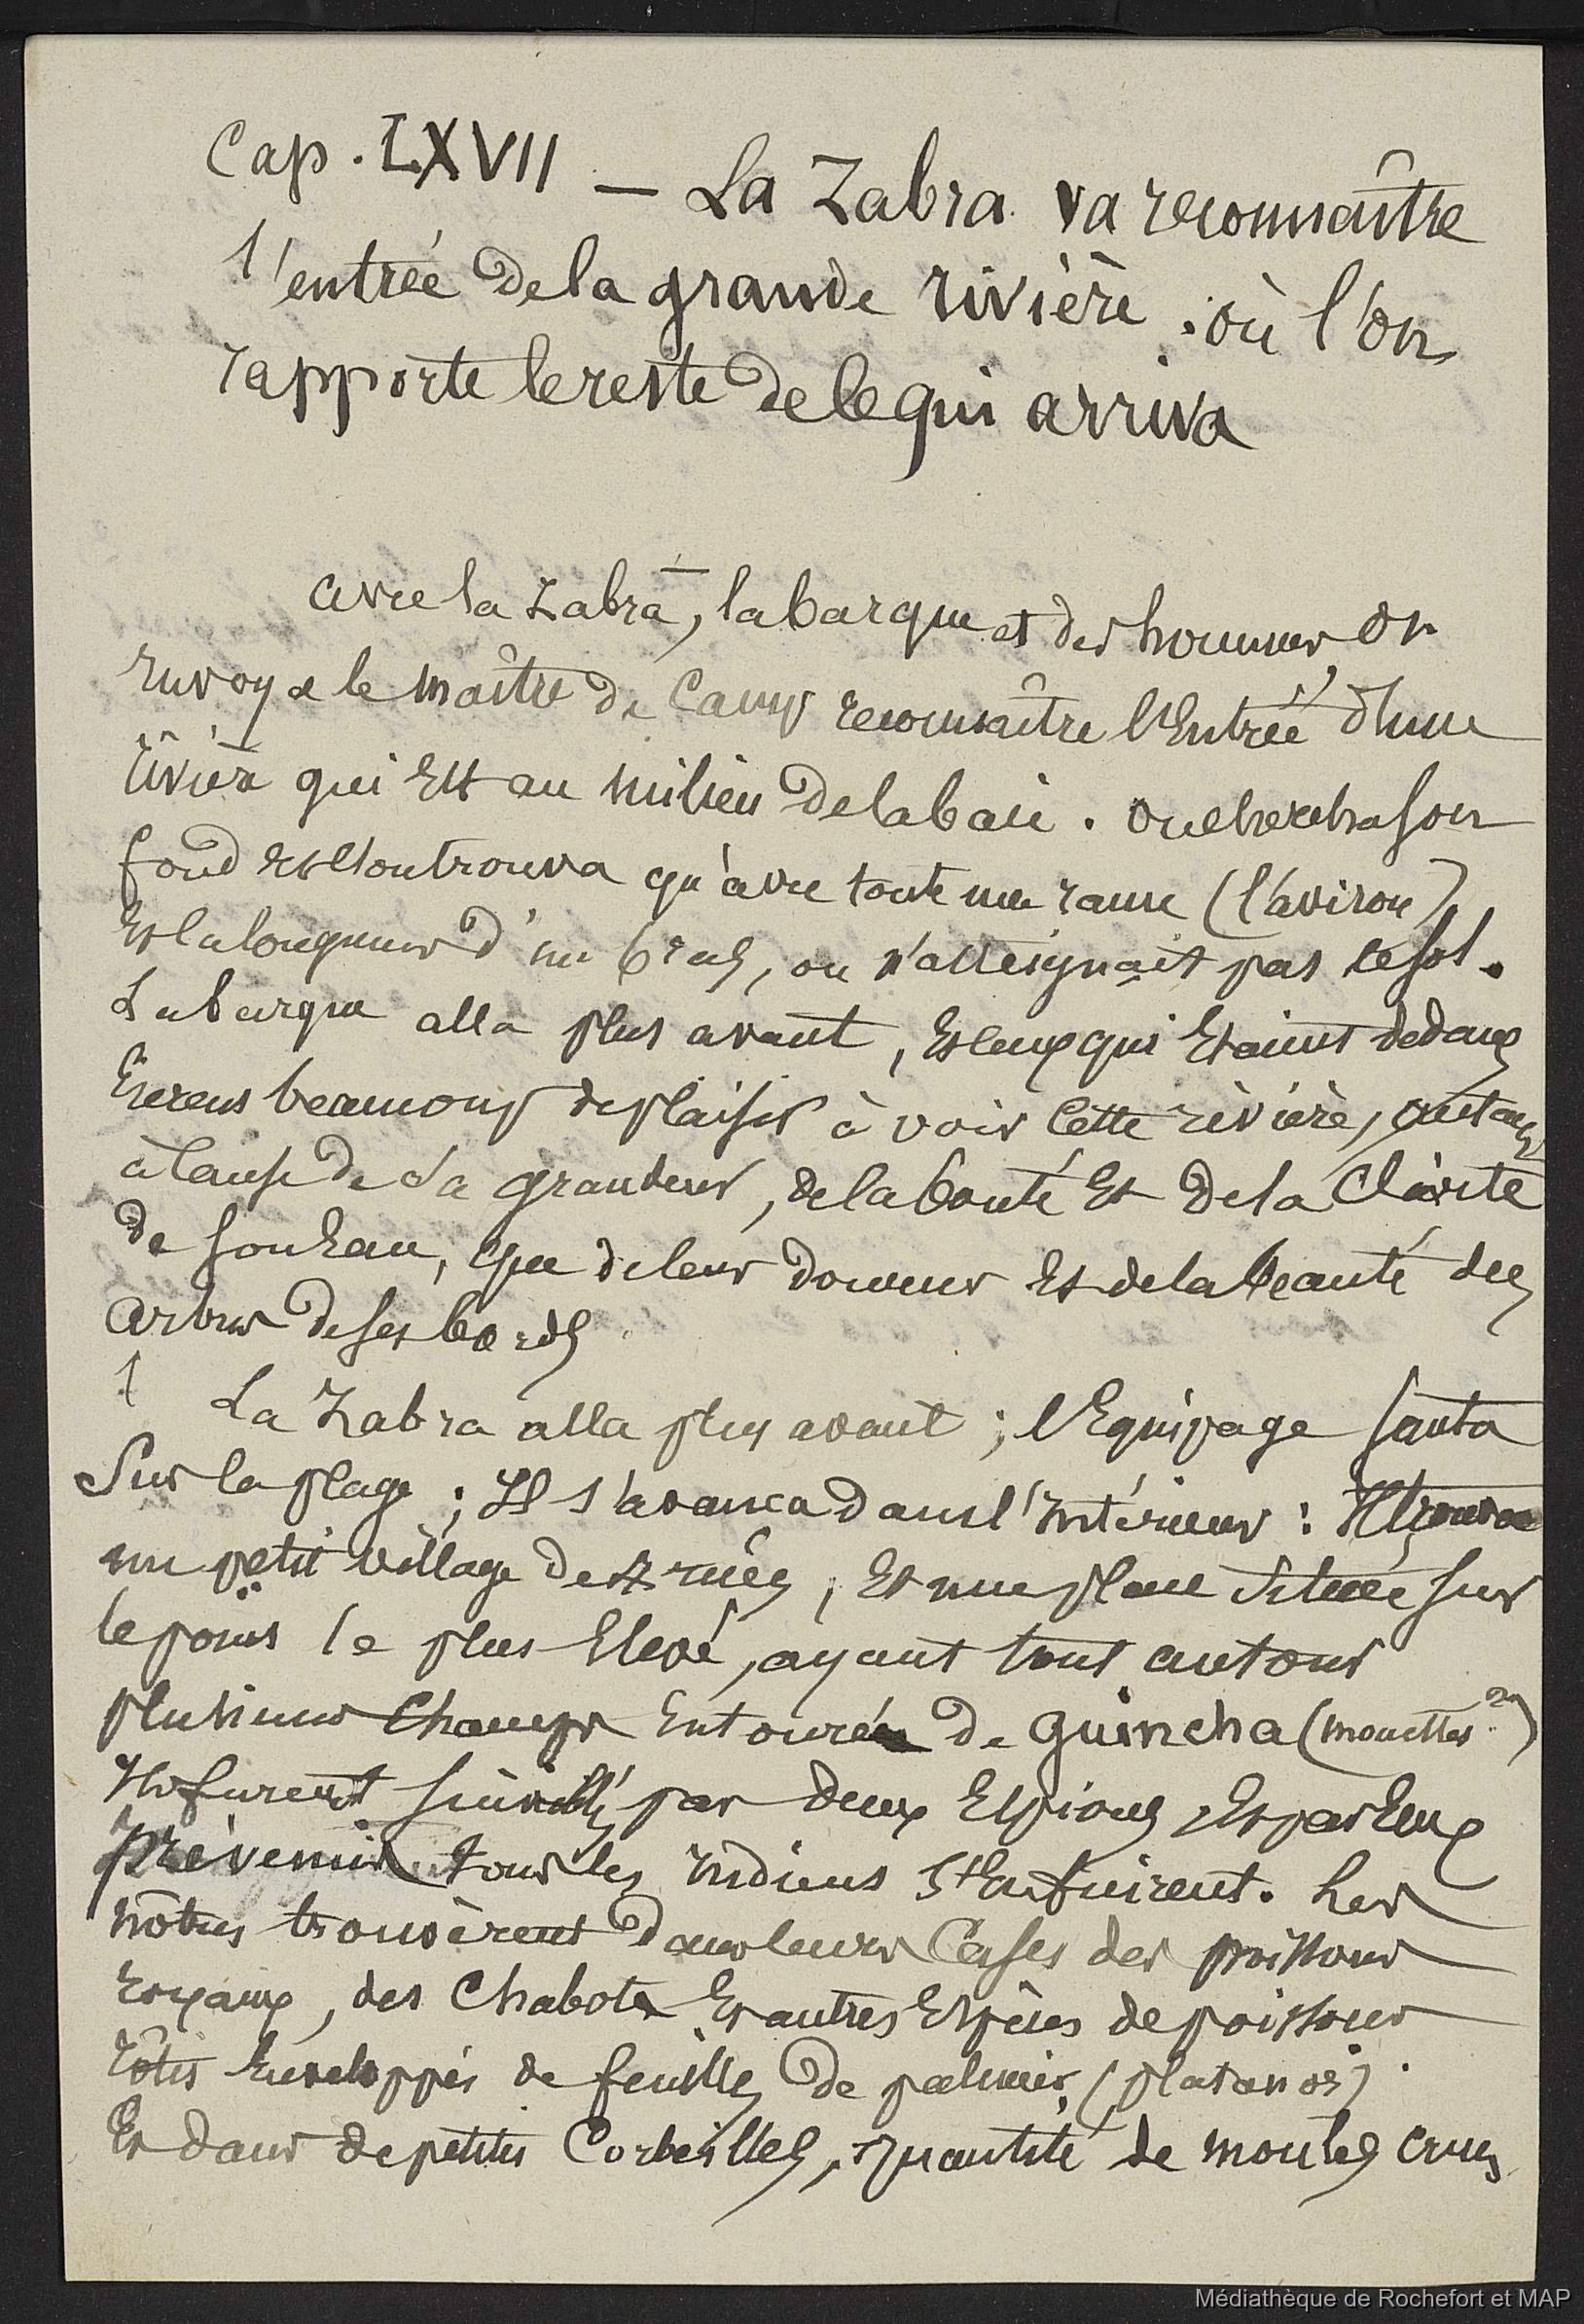 Cap. LXVII — La Zabra va reconnaître
l'entrée de la grande rivière : où l'on
rapporte le reste de ce qui arriva
avec la Zabra, la barque et des hommes, on
envoya le maître de Camp reconnaître l'Entrée d'une
rivière qui Est au milieu de la baie. on chercha son
fond Et l'on trouva qu'avec toute une rame (l'aviron)
Et la longueur d'un bras, on n'atteignait pas le sol.
La barque alla plus avant, Et ceux qui Etaient dedans
Eurent beaucoup de plaisir à voir cette rivière, autant
à cause de sa grandeur, de la bonté Et de la Clarté
de son Eau, que de leur douceur Et de la beauté des
arbres de ses bords.
La Zabra alla plus avant ; l'Equipage sauta
Sur la plage ; Il s'avança dans l'intérieur : Il trouva
un petit village de 4 rues, Et une place située sur
le point le plus Elevé, ayant tout autour
plusieurs Champs Entourés de guincha (mouettes ?)
Ils furent par deux Espions, Et par Eux
prévenus tous les indiens s'Enfuirent. Les
nôtres trouvèrent dans leurs Cases des poissons
royaux, des Chabots Et autres Espèces de poissons
rôtis Enveloppés de feuilles de palmier (platanos).
Et dans de petites Corbeilles, quantité de moules crues
Médiathèque de Rochefort et MAP